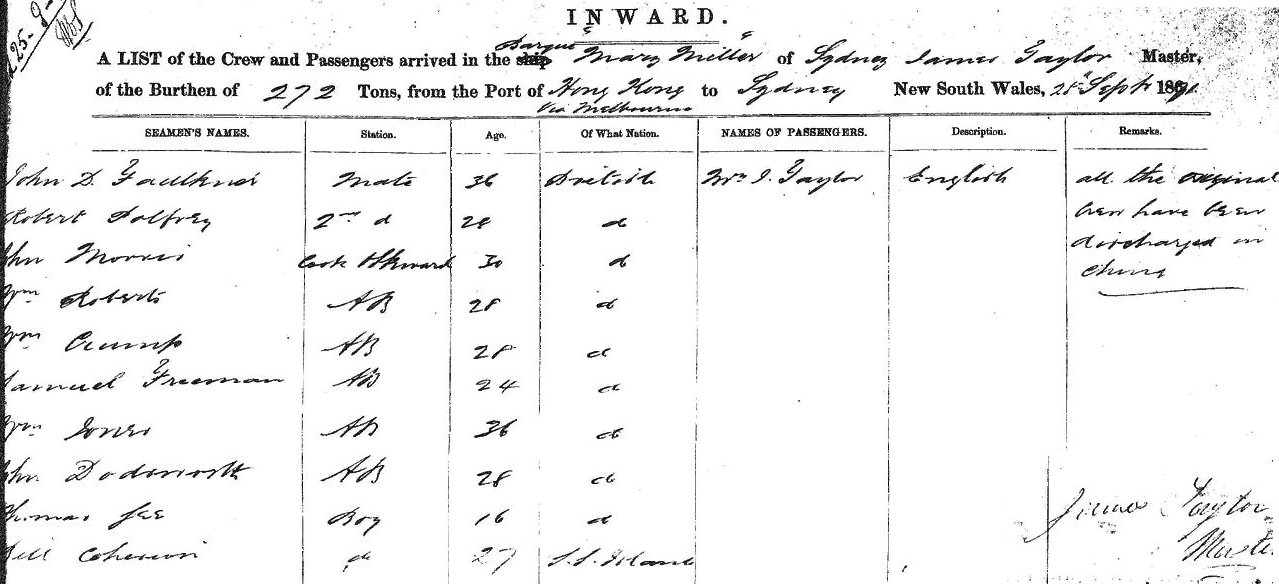 25-9-
INWARD.
A LIST of the Crew and Passengers arrived in the ship Barque "Mary Miller" of Sydney James Taylor Master,
of the Burthen of 272 Tons, from the Port of Hong Kong to Sydney New South Wales, Sept 18
via Melbourne
SEAMEN'S NAMES. Station. Age. Of What Nation. NAMES OF PASSENGERS. Description. Remarks.
John D. Faulkner Mate 36 British Mrs J. Taylor English all the original
Robert Palfrey 2nd d 28 d Crew have been
John Morris Cook & Steward 30 d discharged in
Wm Roberts AB 28 d China
Wm Crump AB 28 d
Samuel Freeman AB 24 d
Wm Jones AB 36 d
John Dodsworth AB 28 d
Thomas Lee Boy 16 d James Taylor
Bill d 27 S.S. Island Master